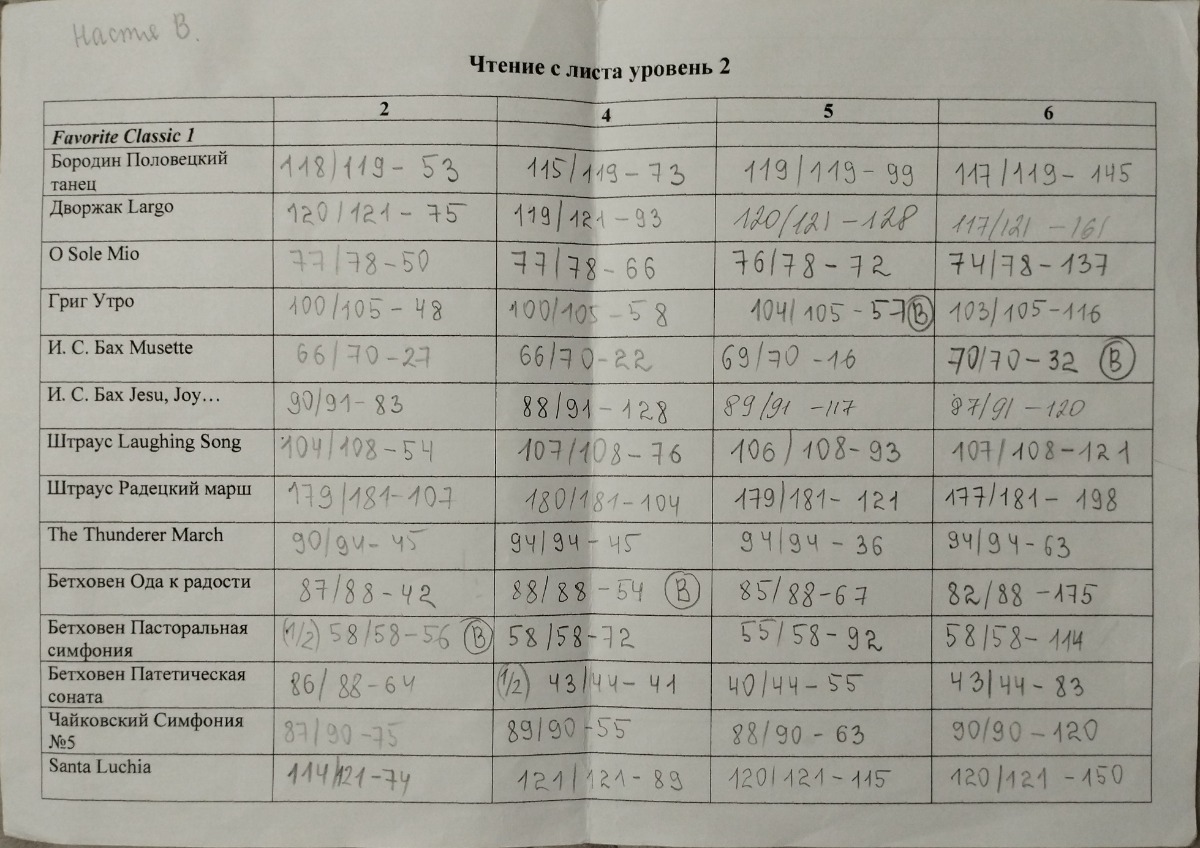 Настя В.
Чтение с листа уровень 2
2 4 5 6
Favorite Classic 1
Бородин Половецкий танец 118/119 - 53 115/119 - 73 119/119 - 99 117/119 - 145
Дворжак Largo 120/121 - 75 119/121 - 93 120/121 - 128 117/121 - 161
O Sole Mio 77/78 - 50 77/78 - 66 76/78 - 72 74/78 - 137
Григ Утро 100/105 - 48 100/105 - 58 104/105 - 57 В 103/105 - 116
И. С. Бах Musette 66/70 - 27 66/70 - 22 69/70 - 16 70/70 - 32 В
И. С. Бах Jesu, Joy… 90/91 - 83 88/91 - 128 89/91 - 117 87/91 - 120
Штраус Laughing Song 104/108 - 54 107/108 - 76 106/108 - 93 107/108 - 121
Штраус Радецкий марш 179/181 - 107 180/181 - 104 179/181 - 121 177/181 - 198
The Thunderer March 90/94 - 45 94/94 - 45 94/94 - 36 94/94 - 63
Бетховен Ода к радости 87/88 - 42 88/88 - 54 В 85/88 - 67 82/88 - 175
Бетховен Пасторальная симфония (1/2) 58/58 - 56 В 58/58 - 72 55/58 - 92 58/58 - 114
Бетховен Патетическая соната 86/88 - 64 (1/2) 43/44 - 41 40/44 - 55 43/44 - 83
Чайковский Симфония №5 87/90 - 75 89/90 - 55 88/90 - 63 90/90 - 120
Santa Luchia 114/121 - 74 121/121 - 89 120/121 - 115 120/121 - 150